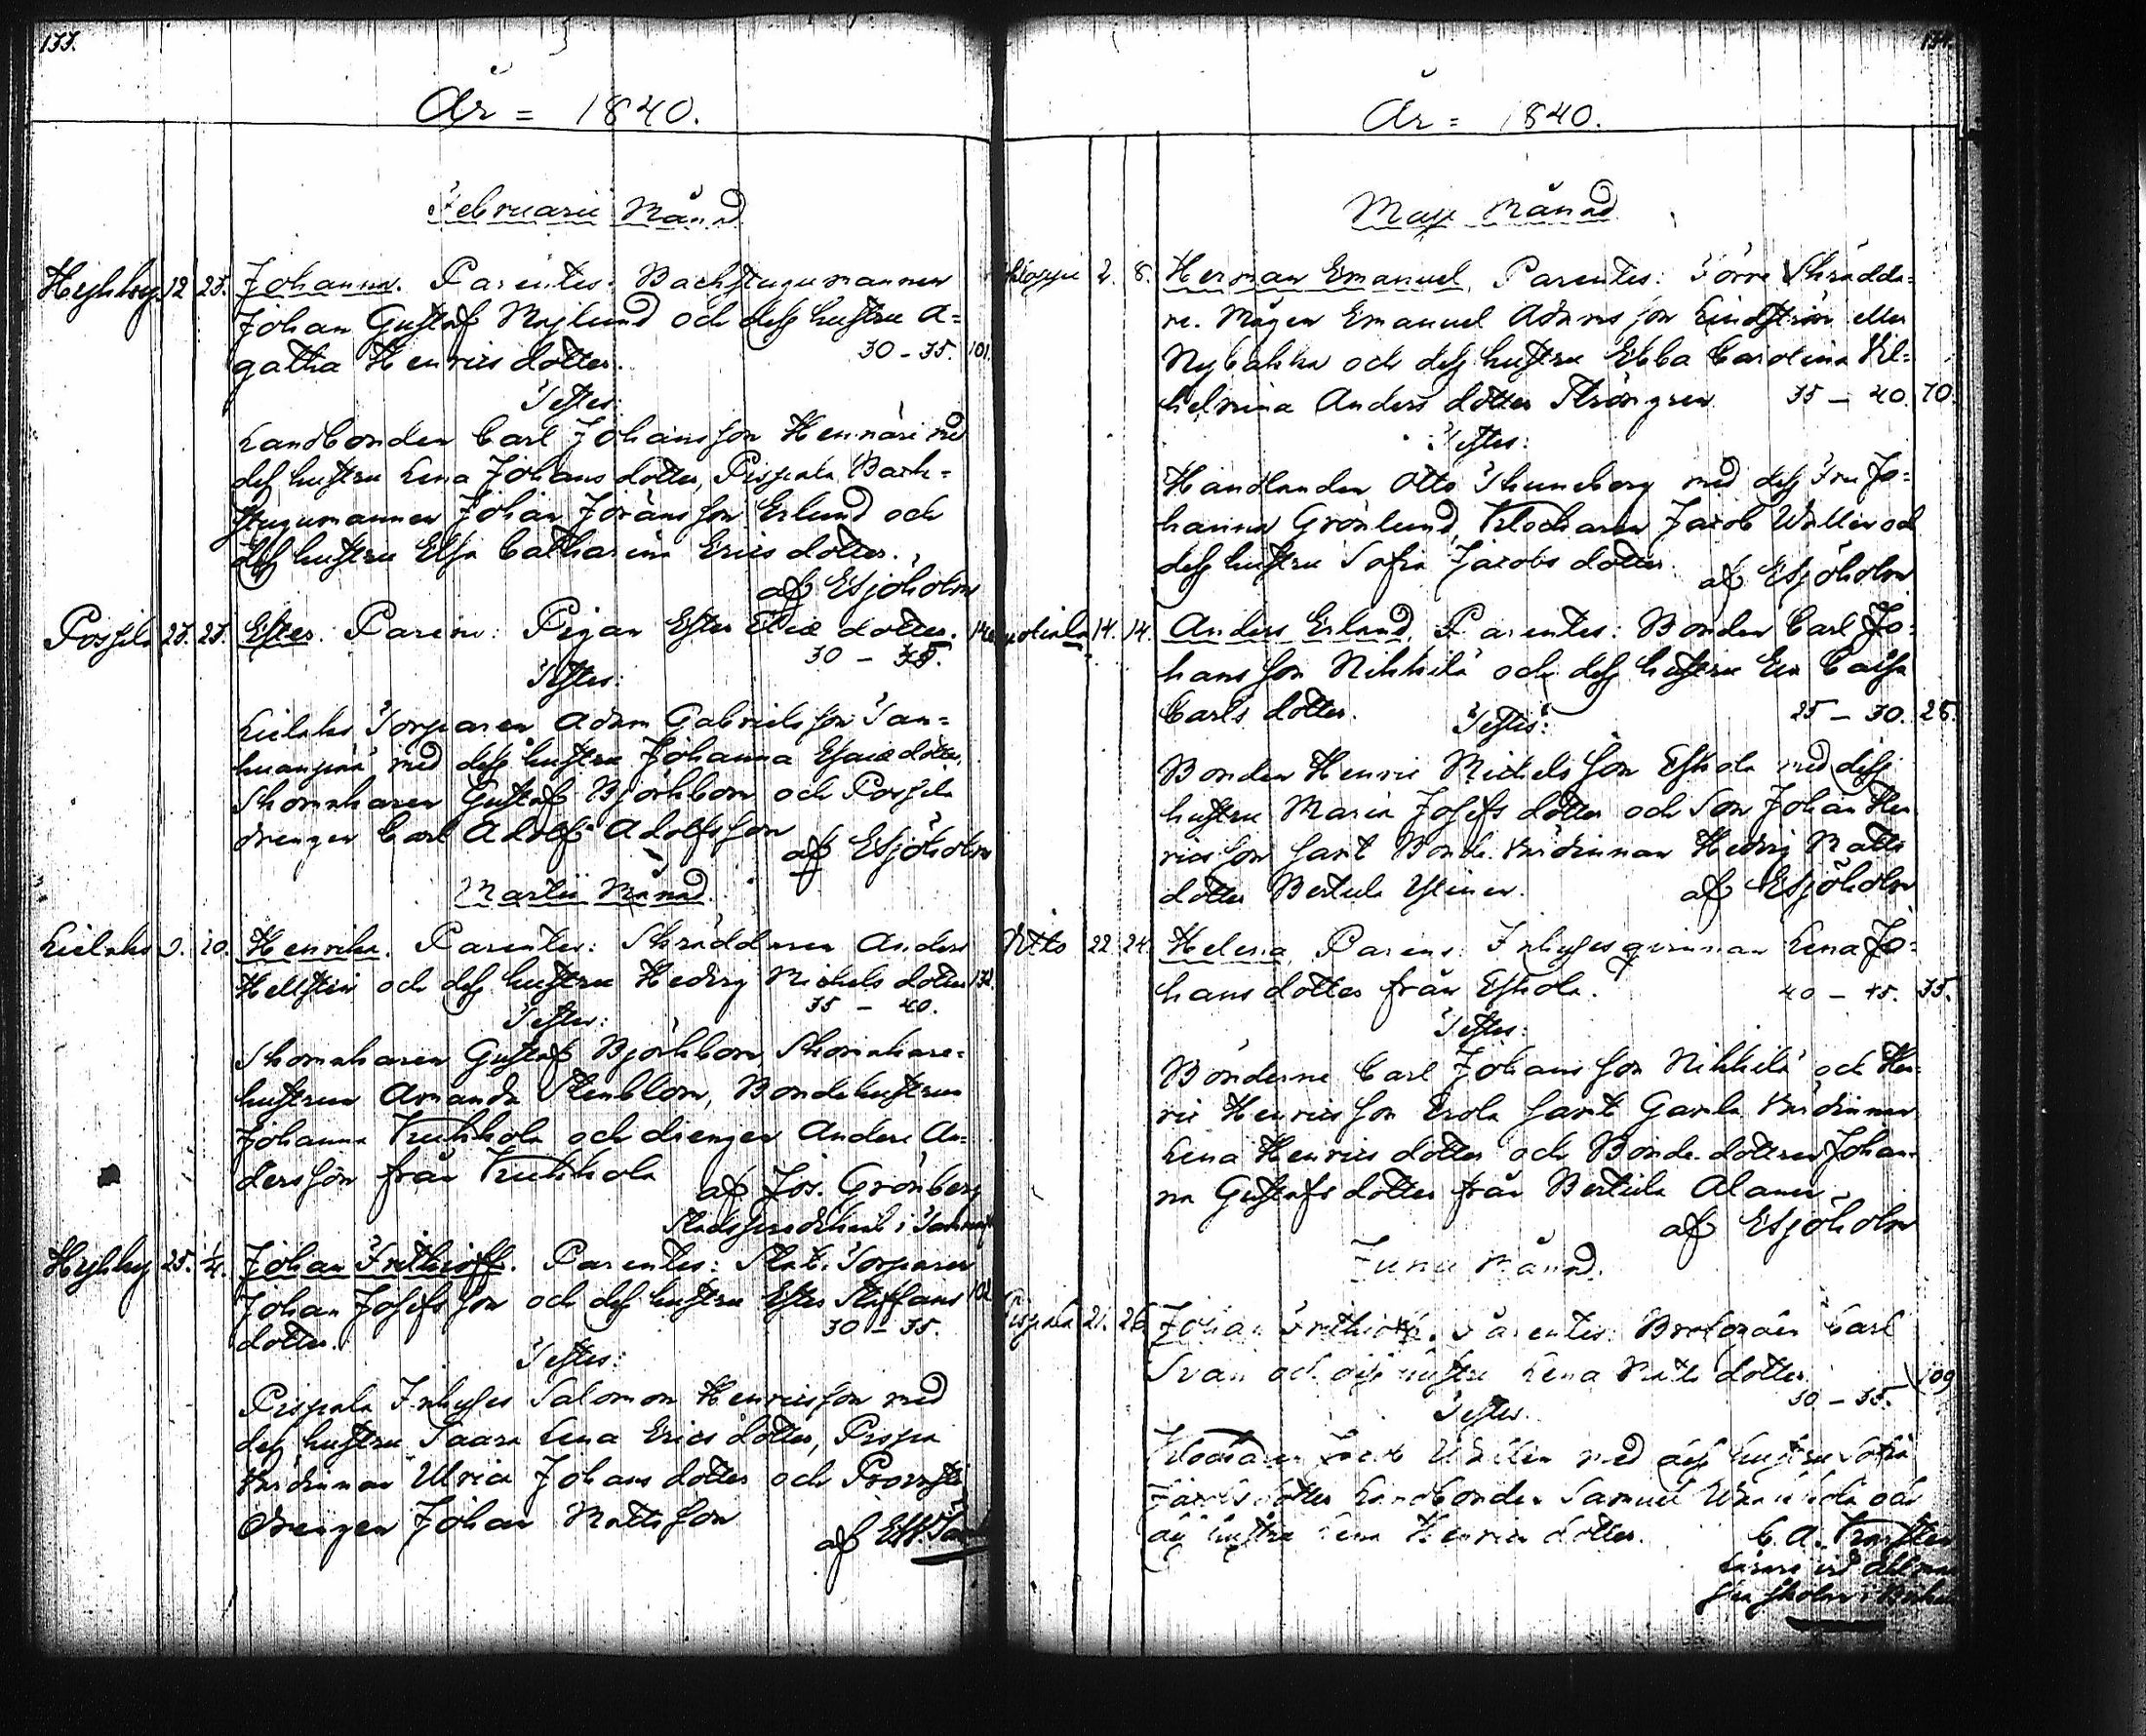 133.
År = 1840.
Februarii Månad
Hyhky 12 23. Johanna. Parentes: Backstugumannen
Johan Gustaf Majlund och dess hustru A=
gatha Henrics dotter. 30 - 35. 101.
Testes:
Landbonden Carl Johansson Hennäri med
dess hustru Lena Johans dotter, Pispala Back=
stugumannen Johan Jöransson Erlund och
dess hustru Elsa Catharina Erics dotter.
af ESjöholm
Possila 23. 23. Ester. Parens: Pigan Ester Eliæ dotter.
30 - 35.
Testes:
Lielaks Torparen Adam Gabrielsson Tan=
huanpää med dess hustru Johanna Esaiæ dotter,
Skomakaren Gustaf Björkbom och Possila
drengen Carl Adolf Adolfsson
af ESjöholm
Martii Månad.
Lielaks 9. 10. Henrika. Parentes: Skräddaren Anders
Hellsten och dess hustru Hedvig Michels dotter 132.
35 - 40.
Testes:
Skomakaren Gustaf Björkbom, Skomakare=
hustrun Amanda Stenblom, Bondehustrun
Johanna Kuhkola och drengen Anders An=
dersson från Kuhkola
af Jos. Grönberg
Hyhky 25. 1/4. Johan Frithioff. Parentes: Stat. Torparen
Johan Josefsson och dess hustru Ester Staffans 102
dotter. 30 - 35.
Testes:
Pispala Inhyses Salomon Henricsson med
dess hustru Saara Lena Erics dotter, Pispa
Värdinnan Ulrica Johans dotter och Provsti
drengen Johan Mattsson
År = 1840.
Maji Månad
2. 8. Herman Emanuel. Parentes: Förre Skrädda=
re. Mågen Emanuel Adamsson Lindström eller
Nybacka och dess hustru Ebba Carolina Vil=
helmina Anders dotter Strömgren. 35 - 40. 70.
Testes:
Handlanden Otto Thuneberg med dess Fru Jo=
hanna Grönlund, Klockaren Jacob Wallin och
dess hustru Sofia Jacobs dotter. af ESjöholm
14. 14. Anders Erland. Parentes: Bonden Carl Jo=
hansson Nikkilä och dess hustru Eva Caisa
Carls dotter. 25 - 30. 28.
Testes:
Bonden Henric Michelsson Eskola med dess
hustru Maria Josefs dotter och Son Johan Hen
ricsson samt Bonde Värdinnan Hedvig Matts
dotter Bertula Yliner. af ESjöholm
Otto 22 24. Helena. Parens: Inhysesqvinnan Lena Jo=
hans dotter från Eskola. 40 - 45. 35.
Testes:
Bönderne Carl Johansson Nikkilä och Hen=
ric Henricsson Erola samt Gamla Värdinnan
Lena Henrics dotter och Bonde dottren Johan=
na Gustafs dotter från Bertula Alaner.
af ESjöholm
Junii Månad.
Pispala 21. 26. Johan Frithioff. Parentes: Carl
Svan och dess hustru Lena Matts dotter. 109
30 - 35.
Testes.
Klockaren Jacob Wallin med dess hustru Sofia
Jacobs dotter Landbonden Samuel och
dess hustru Lena Henrics dotter.